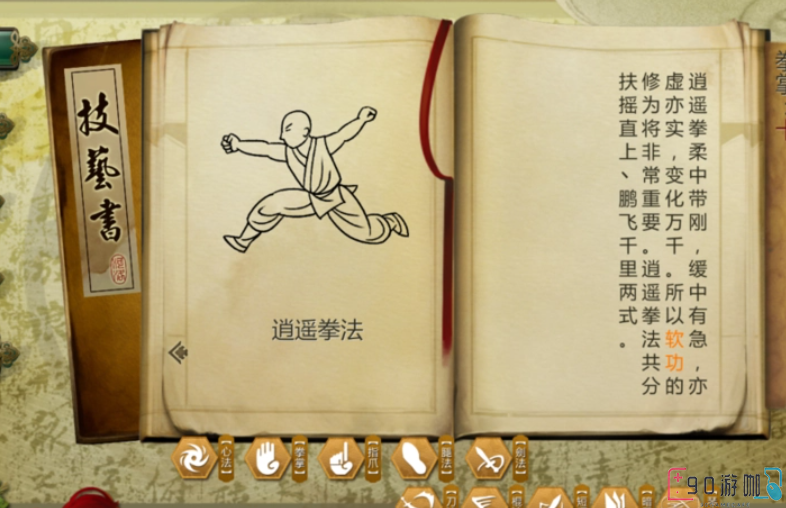 技藝書
逍遥拳法
逍遥拳柔中带刚，缓中有急，亦
虚亦实，变化万千。所以软功的
修为将非常重要。逍遥拳法共分
扶摇直上、鹏飞千里两式。
拳掌
【心法】
【拳掌】
【指爪】
【腿法】
【剑法】
【刀
90游咖